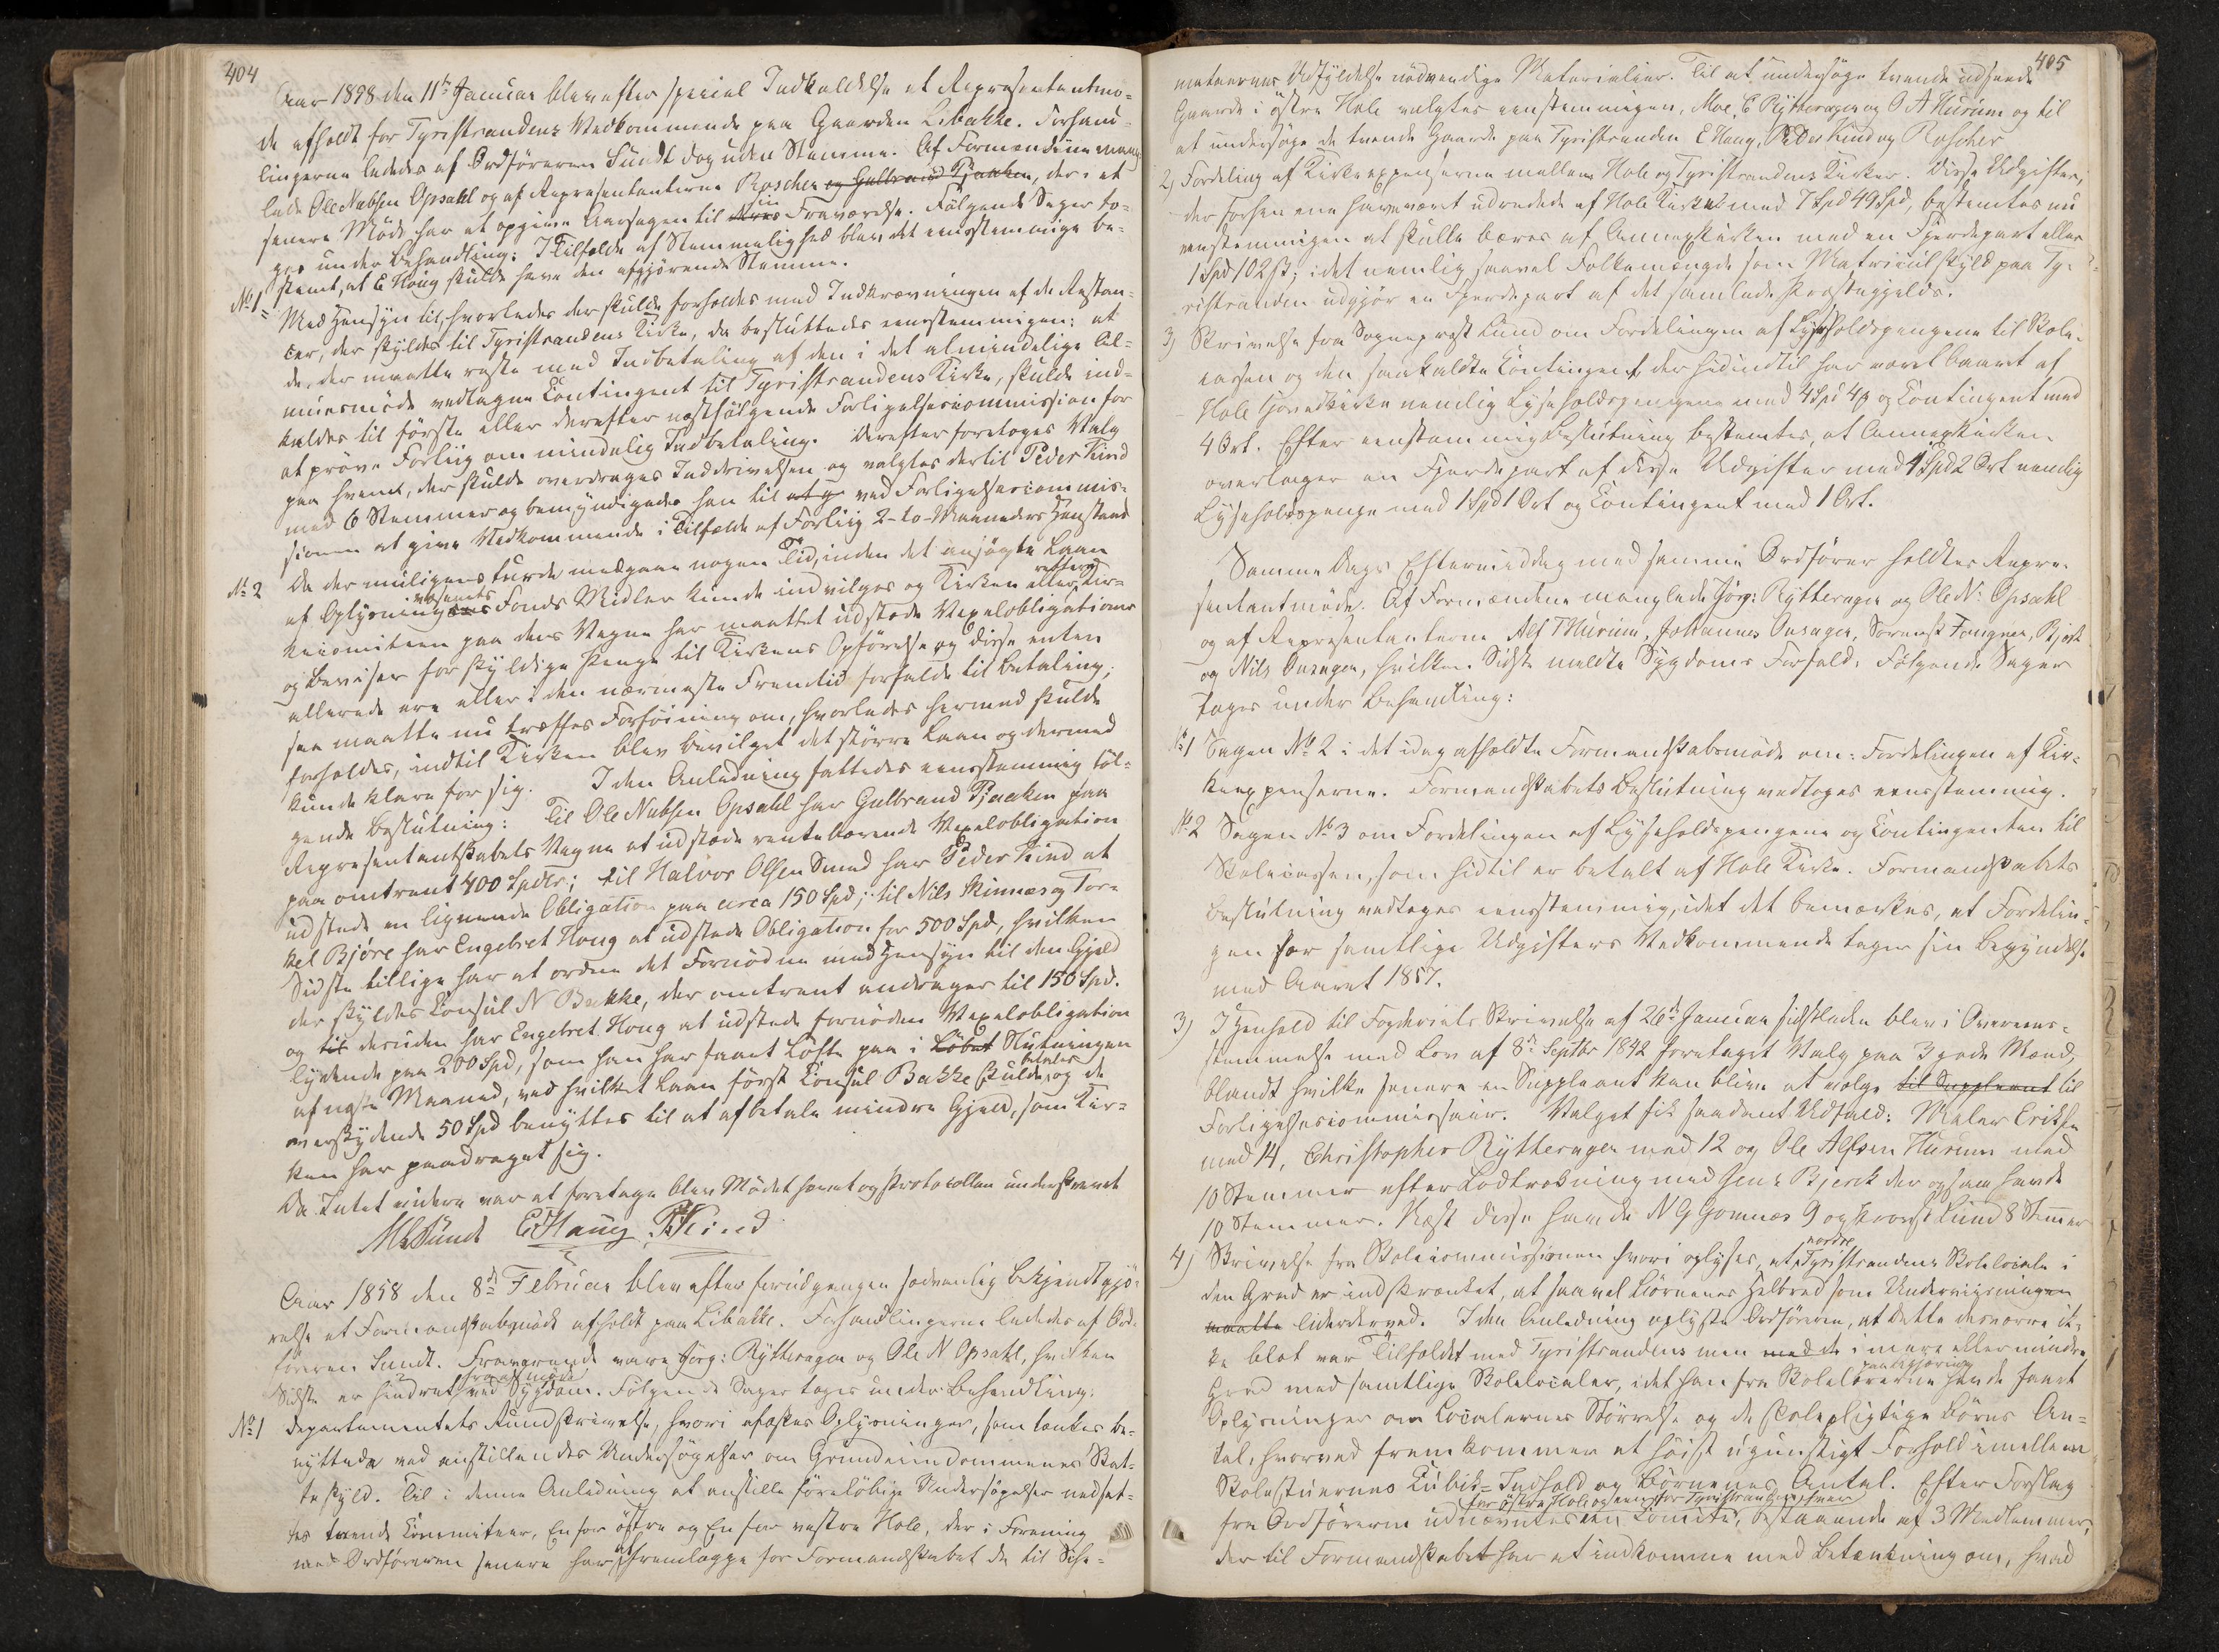 404
Aar 1898 den 11te Januar blev efter special Indkaldelse et Representantmö-
de afholdt for Tyristrandens Vedkommende paa Gaarden Libakke. Forhand-
lingerne lededes af Ordföreren Sundt dog uden Stemme. Af Formændene mang-
lede Ole Nubsen Opsahl og af Representanterne Roscher og Gulbrand Tjaaken, der i et
senere Möde har at opgive Aarsagen til Fraværelse. Fölgende Sager to-
ges under Behandling: I Tilfælde af Stemmelighed blev det eensstemmige be-
stemt, at E Houg skulde have den afgjörende Stemme.
No 1 Med Hensyn til, hvorledes der skulde forholdes med Indkrævningen af de Restan-
cer, der skyldes til Tyristrandens Kirke, da besluttedes eenstemmigen: at
de, der maatte reste med Indbetaling af den i det almindelige Al-
muesmöde vedtagne Contingent til Tyristrandens Kirke, skulde ind-
kaldes til förste eller derefter næstfölgende Forligelsescommission for
at pröve Forliig om mindelig Indbetaling. Derefter foretoges Valg
paa hvem, der skulde overdrages Inddrivelsen og valgtes dertil Peder Kind
med 6 Stemmer og bemyndigedes han til at g ved Forligelsescommis-
sionen at give Vedkommende i Tilfælde af Forliig 2-to-Maaneders Henstand
No 2 Da der muligens turde medgaae nogen Tid, inden det ansögte Laan
af Oplysningsvæsenets Fonds Midler kunde indvilges og Kirken eller rettere Kir-
kecomiteen paa dens Vegne har maattet udstede Vexelobligationer
og Beviser for skyldige Penge til Kirkens Opförelse og disse enten
allerede ere eller i den nærmeste Fremtid forfaldt til Betaling;
saa maatte nu træffes Forföining om, hvorledes hermed skulde
forholdes, indtil Kirken blev bevilget det större Laan og dermed
kunde klare for sig. I den Anledning fattedes eensstemmig föl-
gende Beslutning: Til Ole Nubsen Opsahl har Gulbrand Tjaaken paa
Representantskabets Vegne at udstede rentebærende Vexelobligation
paa omtrent 400 Spdlr; til Halvor Olsen Sund har Peder Kind at
udstede en lignende Obligation paa circa 150 Spd; til Nils Skinnes og Tor-
kel Björe har Engebret Houg at udstede Obligation for 500 Spd, hvilken
Sidste tillige har at ordne det Fornödne med Hensyn til den Gjeld
der skyldes Consul N Bakke, der omtrent andrager til 150 Spd.
og til desuden har Engebret Houg at udstede fornöden Vexelobligation
lydende paa 200 Spd, som han har faaet Löfte paa i Löbet Slutningen
af næste Maaned, ved hvilket Laan först Consul Bakke skulde betales og de
overskydende 50 Spd benyttes til at afbetale mindre Gjeld, som Kir-
ken har paadraget sig.
Da Intet videre var at foretage blev Mödet hævet og Protocollen underskrevet
Sundt E Houg P Kind
Aar 1858 den 8de Februar blev efter forudgangen sædvanlig Bekjendtgjö-
relse et Formandskabsmöde afholdt paa Libakke. Forhandlingerne lededes af Ord-
föreren Sundt. Fraværende vare Jörg: Rytterager og Ole N Opsahl, hvilken
Sidste er hindret fra at möde ved Sygdom. Fölgende Sager toges under Behandling:
No 1 Departementets Rundskrivelse, hvori æskes Oplysninger, som tænkes be-
nyttede ved anstillendes Undersögelser om Grundeiendommenes Skat-
teskyld. Til i denne Anledning at anstille forelöbige Undersögelser nedsat-
tes tvende Committeer, En for östre og En for vestre Hole, der i Forening
med Ordföreren senere har at fremlægge for Formandskabet de til Sche-
405
maternes Udfyldelse nödvendige Materialier. Til at undersöge tvende udseede
Gaarde i östre Hole valgtes eenstemmigen, Moe, C Rytterager og O A Hurum og til
at undersöge de tvende Gaarde paa Tyristranden E Houg, Peder Kind og Roscher
2) Fordeling af Kirkeexpenserne mellem Hole og Tyristrandens Kirker. Disse Udgifter,
der forhen ene have været udredede af Hole Kirke med 7 Spd 49 , bestemtes nu
eenstemmigen at skulle bæres af Annexkirken med en Fjerdepart eller
1 Spd 102 ß; idet nemlig saavel Folkemængde som Matriculskyld paa Ty-
ristranden udgjör en Fjerdepart af det samlede Præstegjelds.
3) Skrivelse fra Sogneprest Lund om Fordelingen af Lyseholdspengene til Skole-
cassen og den saakaldte Contingent, der hidindtil har været baaret af
Hole Hovedkirke nemlig Lyseholdspengene med 4 Spd 4 ß og Contingent med
4 Ort. Efter eenstemmig Beslutning bestemtes, at Annexkirken
overtager en Fjerdepart af disse Udgifter med 1 Spd 2 Ort nemlig
Lyseholdspenge med 1 Spd 1 Ort og Contingent med 1 Ort.
Samme Dags Eftermiddag med samme Ordförer holdtes Repre-
sentantmöde. Af Formændene manglede Jörg: Rytterager og Ole N: Opsahl
og af Representanterne Alf Hurum, Johannes Onsager, Fougner, Bjerk
og Nils Onsager, hvilken Sidste meldte Sygdoms Forfald. Fölgende Sager
toges under Behandling:
No 1 Sagen No 2 i det idag afholdte Formandskabsmöde om: Fordelingen af Kir-
keexpenserne. Formandskabets Beslutning vedtoges eensstemmig.
No 2 Sagen No 3 om Fordelingen af Lyseholdspengene og Contingenten til
Skolecassen, som hidtil er betalt af Hole Kirke. Formandskabets
Beslutning vedtoges eensstemmig, idet det bemærkes, at Fordelin-
gen for samtlige Udgifters Vedkommende tager sin Begyndelse
med Aaret 1857.
3) I Henhold til Fogderiets Skrivelse af 26de Januar sidstleden blev i Overeens-
stemmelse med Lov af 8de Septbr 1842 foretaget Valg paa 3 gode Mænd,
blandt hvilke senere en Suppleant kan blive at vælge til Suppleant til
Forligelsescommissair. Valget fik saadant Udfald: Maler Eriksen
med 14, Christopher Rytterager med 12 og Ole Alfsen Hurum med
10 Stemmer efter Lodtrækning med Jens Bjerck der ogsaa havde
10 Stemmer. Næst disse havde N G Gomnæs 9 og Provst Lund 8 Stemmer
4) Skrivelse fra Skolecommissionen hvori oplyses, at nordre Tyristrandens Skolelocale i
den Grad er indskrænket, at saavel Börnenes Helbred som Underviisningen
maatte lide derved. I den Anledning oplyste Ordföreren, at dette desværre ik-
ke blot var Tilfældet med Tyristrandens men med de i mere eller mindre
Grad med samtlige Skolelocaler, idet han fra Skolelærerne paa Begjæring havde faaet
Oplysninger om Localernes Störrelse og de skolepligtige Börns An-
tal, hvorved fremkommer et höist ugunstigt Forhold imellem
Skolestuernes Cubik-Indhold og Börnenes Antal. Efter Forslag
fra Ordföreren udnævntes en Comite, for östre Hole og een for Tyristranden, hver bestaaende af 3 Medlemmer,
der til Formandskabet har at indkomme med Betænkning om, hvad